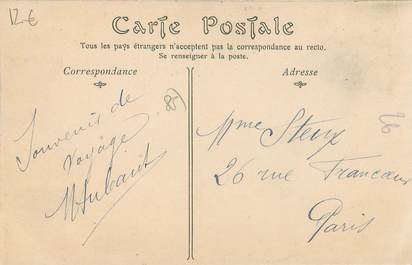 12€
Carte Postale
Tous les pays étrangers n'acceptent pas la correspondance au recto.
Se renseigner à la poste.
Correspondance
Souvenir de
voyage
Adresse
Mme
26 rue
Paris